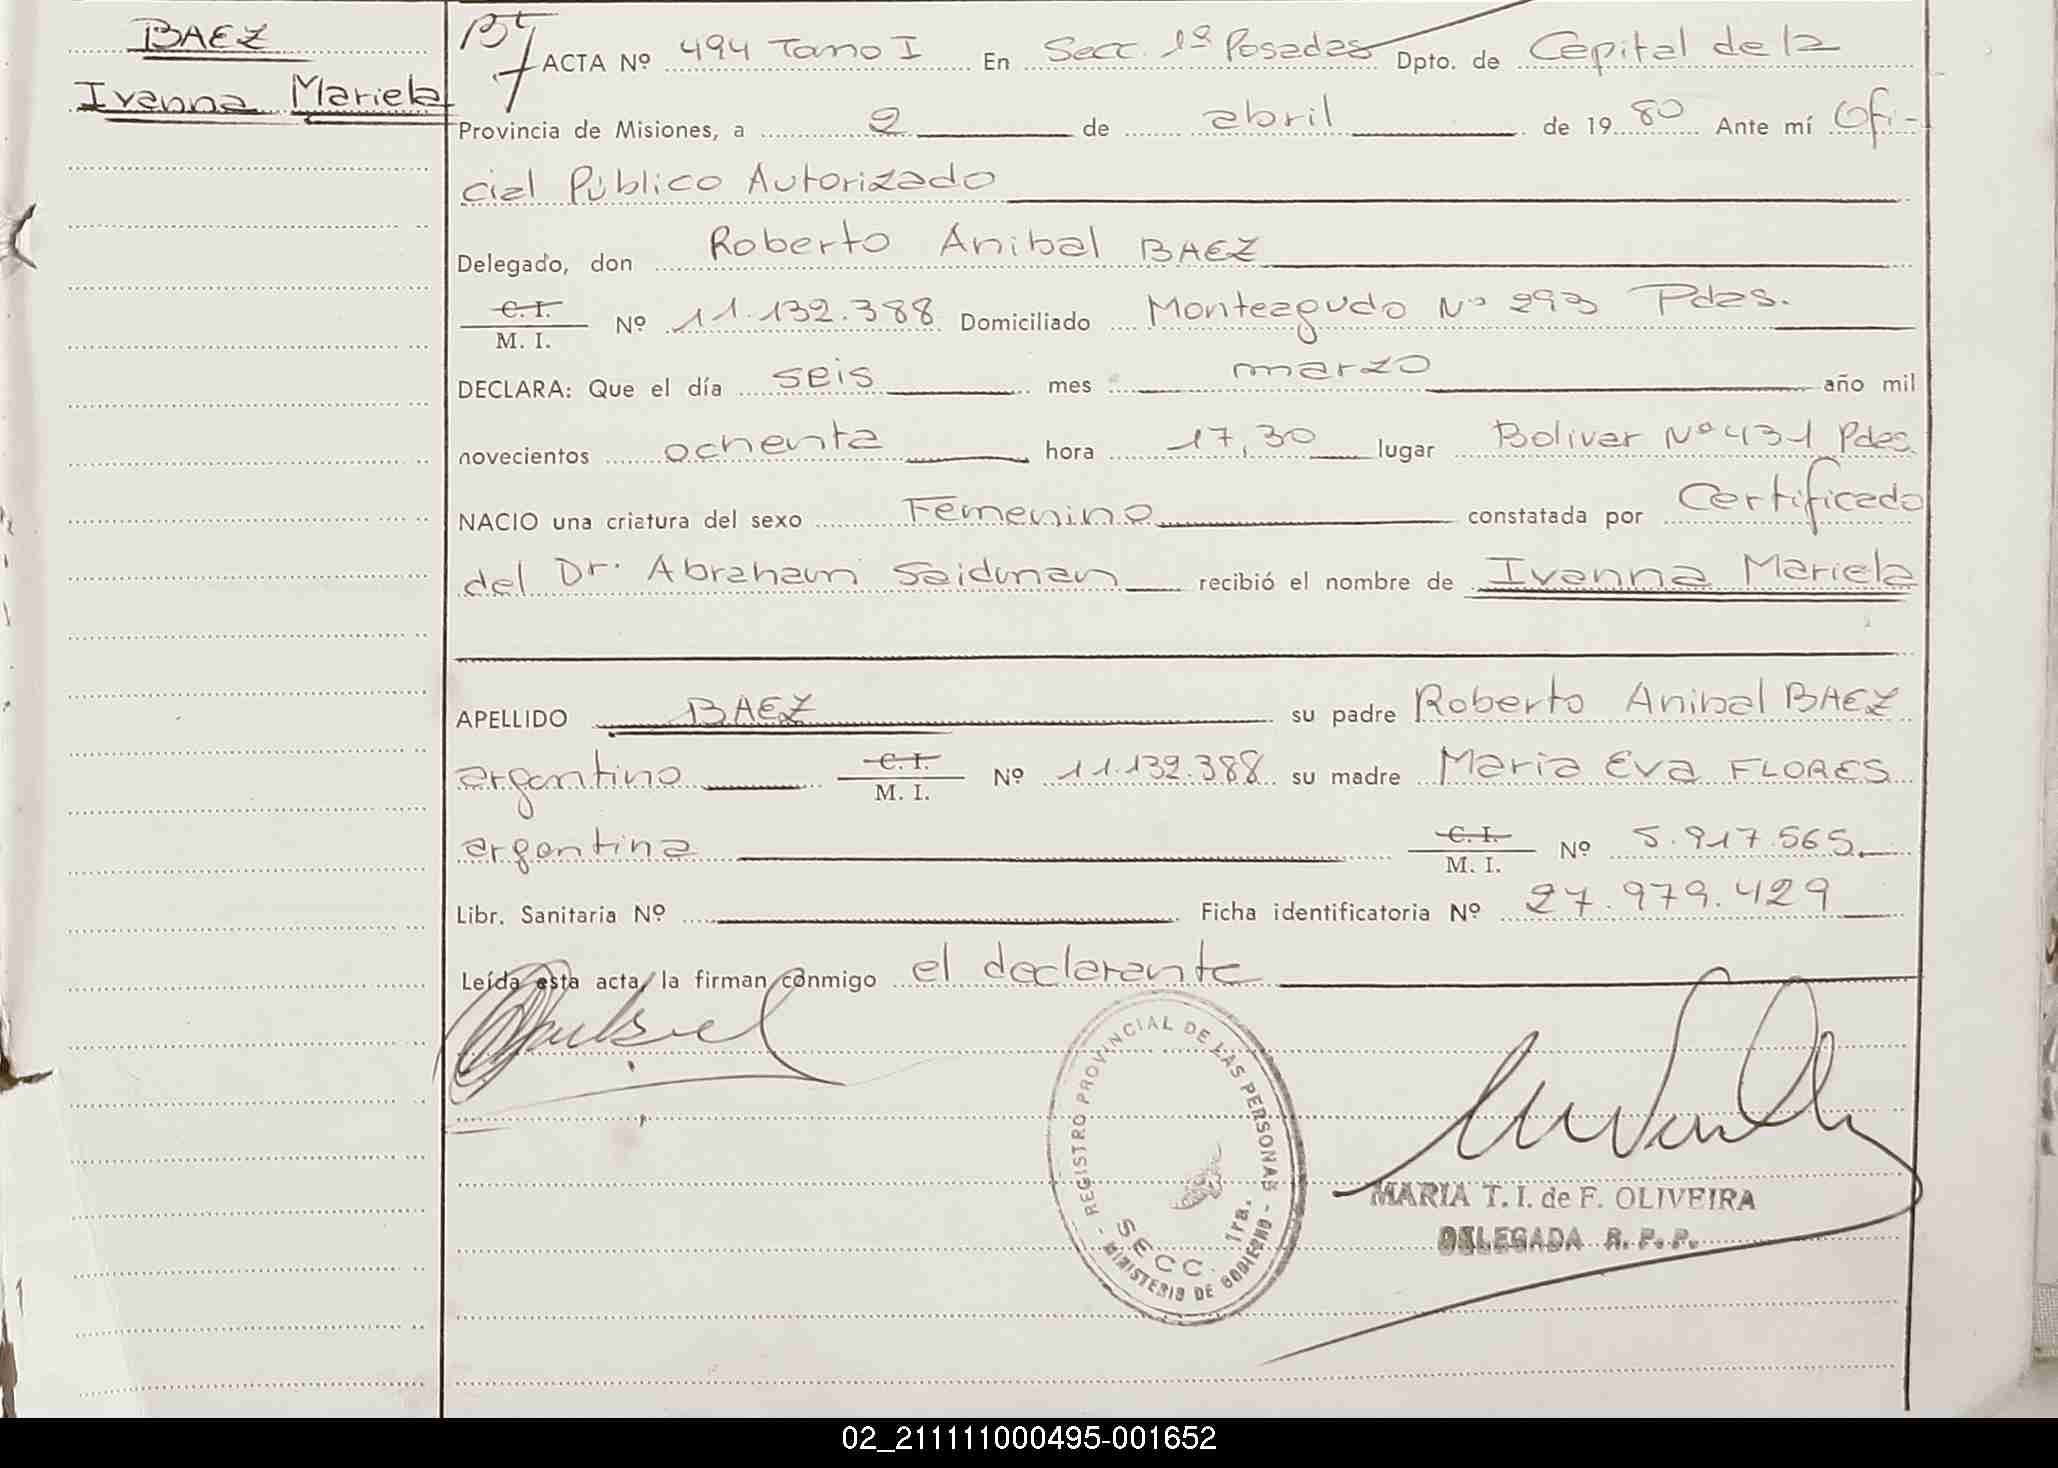 BAEZ
Ivanna Mariela
ACTA Nº 494 Tomo I En Secc. 1ª Posadas Dpto. de Capital de la
Provincia de Misiones, a 2 de abril de 1980 Ante mí Ofi-
cial Público Autorizado
Delegado, don Roberto Anibal BAEZ
C. I.
M. I. Nº 11.132.388 Domiciliado Monteagudo Nº 293 Pdas.
DECLARA: Que el día seis mes marzo año mil
novecientos ochenta hora 17,30 lugar Bolivar Nº 431 Pdas.
NACIO una criatura del sexo Femenino constatada por Certificado
del Dr. Abraham Saidman recibió el nombre de Ivanna Mariela
APELLIDO BAEZ su padre Roberto Anibal BAEZ
argentino C. I. M. I. Nº 11.132.388 su madre Maria Eva FLORES
argentina C. I. M. I. Nº 5.917.565.
Libr. Sanitaria Nº Ficha identificatoria Nº 27.979.429
Leída esta acta, la firman conmigo el declarante
- REGISTRO PROVINCIAL DE LAS PERSONAS -
SECC. 1ra.
MINISTERIO DE GOBIERNO
MARIA T. I. de F. OLIVEIRA
DELEGADA R. P. P.
02_211111000495-001652